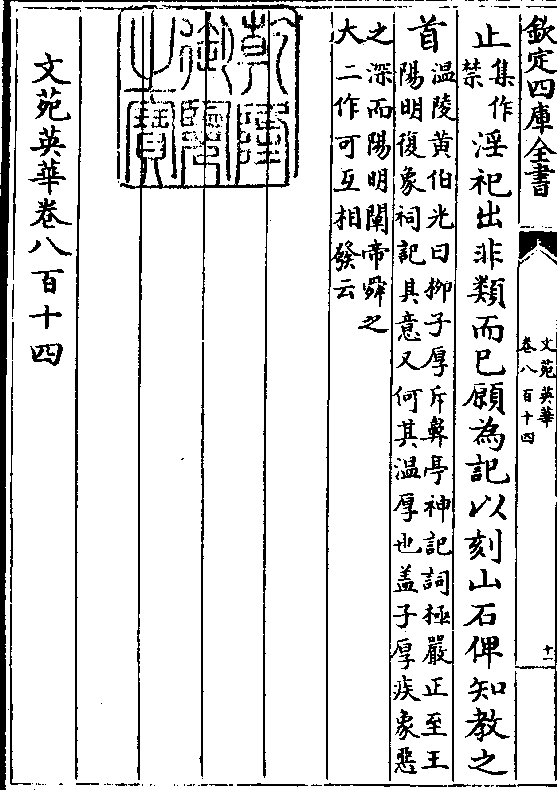 欽定四庫全書
文苑英華
卷八百十四
十一
止集作禁淫祀出非類而已願為記以刻山石俾知教之
首
温陵黄伯光曰柳子厚斥鼻亭神記詞極嚴正至王
陽明復象祠記其意又何其温厚也盖子厚疾象惡
之深而陽明闡帝舜之
大二作可互相發云
乾隆
御覽
之寶
文苑英華卷八百十四